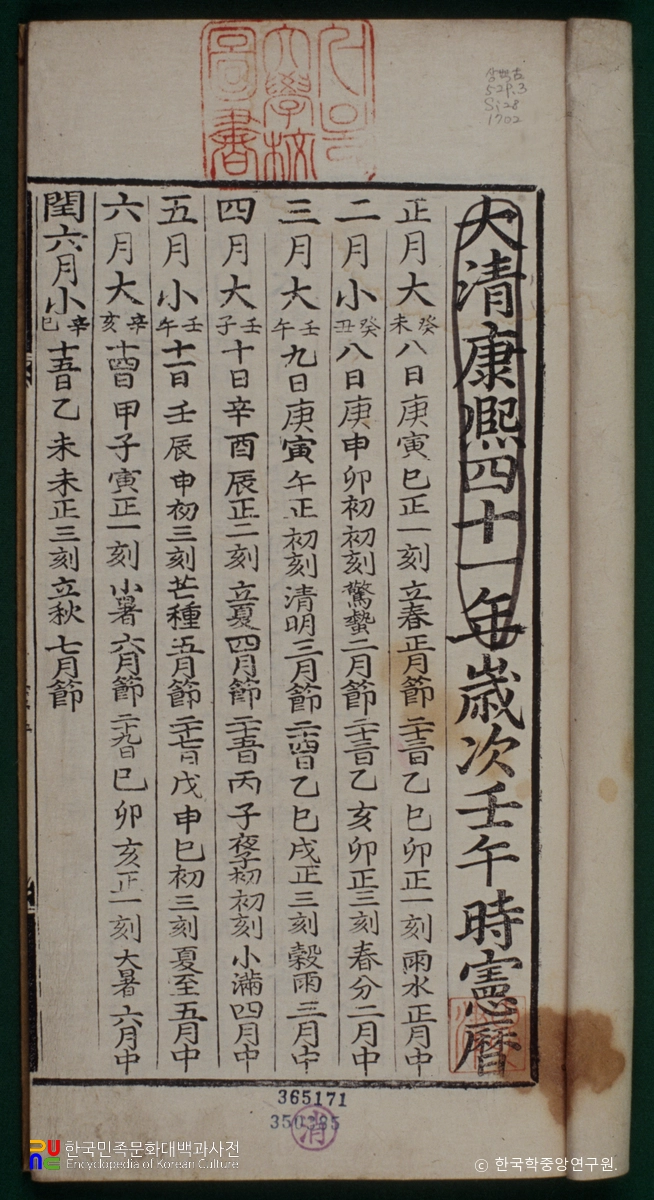 서울
大學校
圖書
상백古
529.3
Si28
1702
大清康熙四十一年歲次壬午時憲曆
正月大癸未八日庚寅巳正一刻立春正月節二十三日乙巳卯正一刻雨水正月中
二月小癸丑八日庚申卯初初刻驚蟄二月節二十三日乙亥卯正三刻春分二月中
三月大壬午九日庚寅午正初刻清明三月節二十四日乙巳戌正三刻穀雨三月中
四月大壬子十日辛酉辰正二刻立夏四月節二十五日丙子夜子初初刻小滿四月中
五月小壬午十一日壬辰申初三刻芒種五月節二十七日戊申巳初三刻夏至五月中
六月大辛亥十四日甲子寅正一刻小暑六月節二十九日己卯亥正一刻大暑六月中
閏六月小辛巳十五日乙未未正三刻立秋七月節
365171
消
한국민족문화대백과사전
Encyclopedia of Korean Culture
© 한국학중앙연구원.